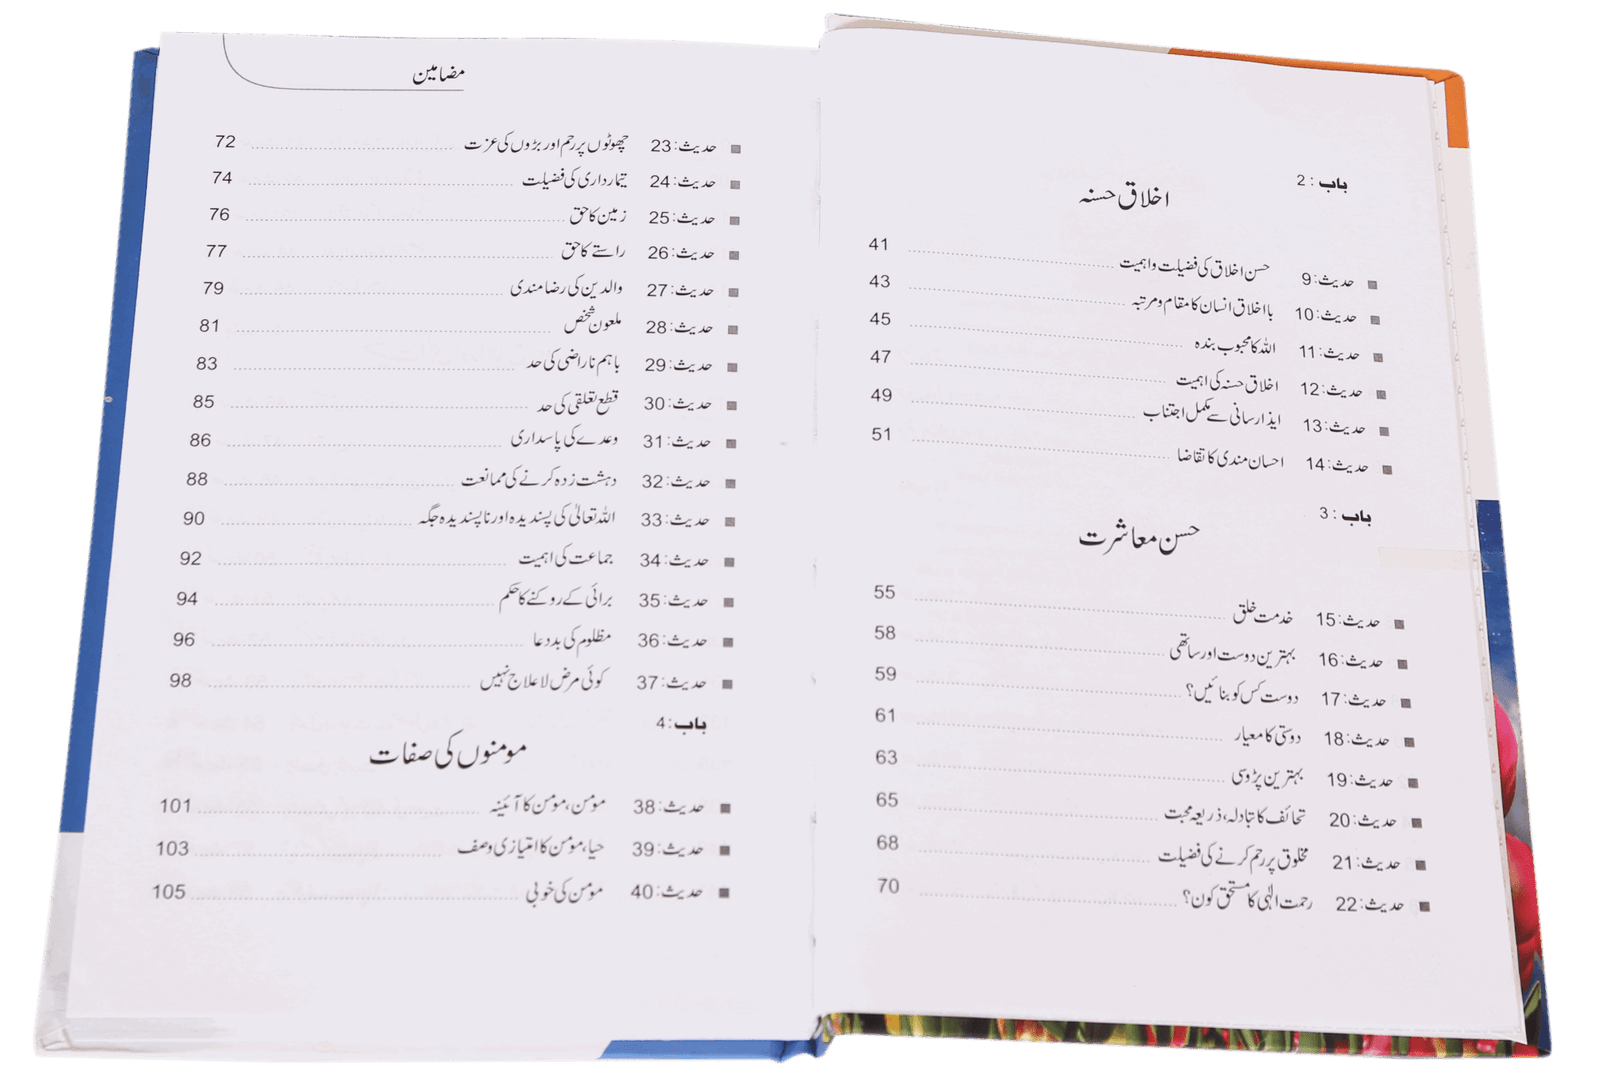 باب : 2
اخلاق حسنہ
حدیث: 9 حسن اخلاق کی فضیلت و اہمیت 41
حدیث: 10 با اخلاق انسان کا مقام و مرتبہ 43
حدیث: 11 اللہ کا محبوب بندہ 45
حدیث: 12 اخلاق حسنہ کی اہمیت 47
حدیث: 13 ایذا رسانی سے مکمل اجتناب 49
حدیث: 14 احسان مندی کا تقاضا 51
باب : 3
حسن معاشرت
حدیث: 15 خدمت خلق 55
حدیث: 16 بہترین دوست اور ساتھی 58
حدیث: 17 دوست کس کو بنائیں؟ 59
حدیث: 18 دوستی کا معیار 61
حدیث: 19 بہترین پڑوسی 63
حدیث: 20 تحائف کا تبادلہ، ذریعہ محبت 65
حدیث: 21 مخلوق پر رحم کرنے کی فضیلت 68
حدیث: 22 رحمت الٰہی کا مستحق کون؟ 70
مضامین
حدیث: 23 چھوٹوں پر رحم اور بڑوں کی عزت 72
حدیث: 24 تیمارداری کی فضیلت 74
حدیث: 25 زمین کا حق 76
حدیث: 26 راستے کا حق 77
حدیث: 27 والدین کی رضا مندی 79
حدیث: 28 ملعون شخص 81
حدیث: 29 باہم ناراضی کی حد 83
حدیث: 30 قطع تعلقی کی حد 85
حدیث: 31 وعدے کی پاسداری 86
حدیث: 32 دہشت زدہ کرنے کی ممانعت 88
حدیث: 33 اللہ تعالیٰ کی پسندیدہ اور ناپسندیدہ جگہ 90
حدیث: 34 جماعت کی اہمیت 92
حدیث: 35 برائی کے روکنے کا حکم 94
حدیث: 36 مظلوم کی بددعا 96
حدیث: 37 کوئی مرض لاعلاج نہیں 98
باب: 4
مومنوں کی صفات
حدیث: 38 مومن، مومن کا آئینہ 101
حدیث: 39 حیا، مومن کا امتیازی وصف 103
حدیث: 40 مومن کی خوبی 105